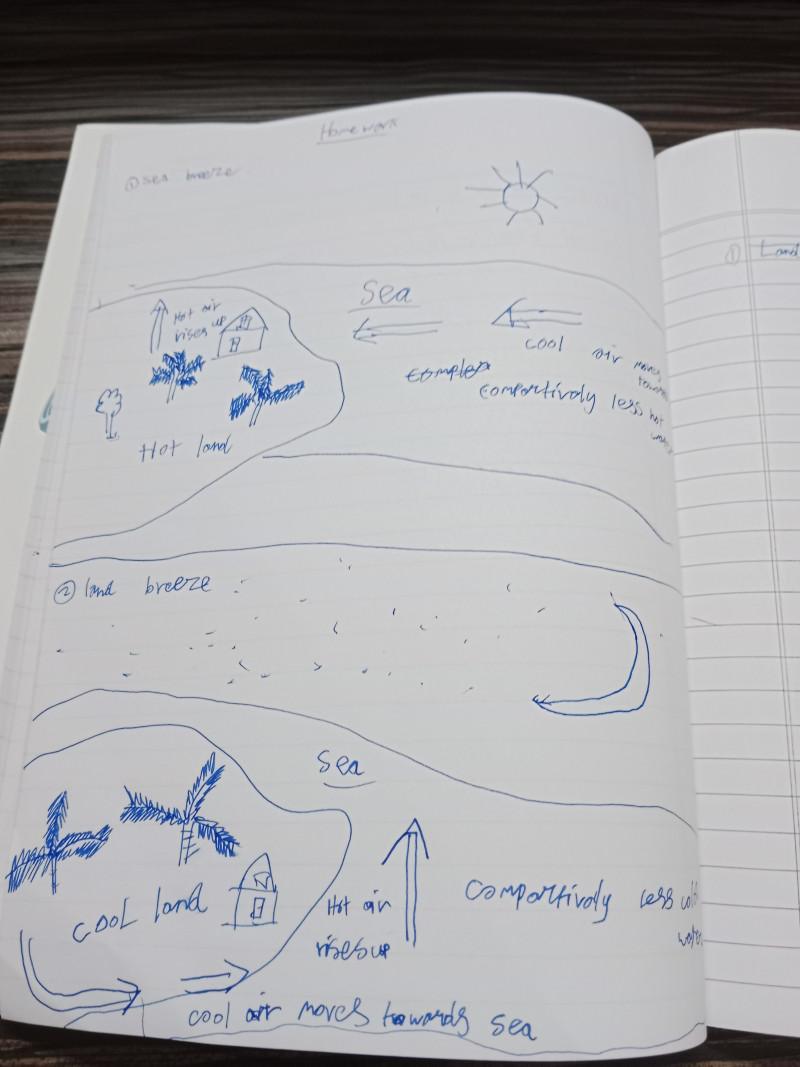 Homework
① sea breeze
Sea
Hot air
rises up
cool air moves
towards
comportively less hot
water
Hot land
② land breeze
Sea
cool land
Hot air
rises up
Comportively less cold
water
cool air moves towards sea
① Land